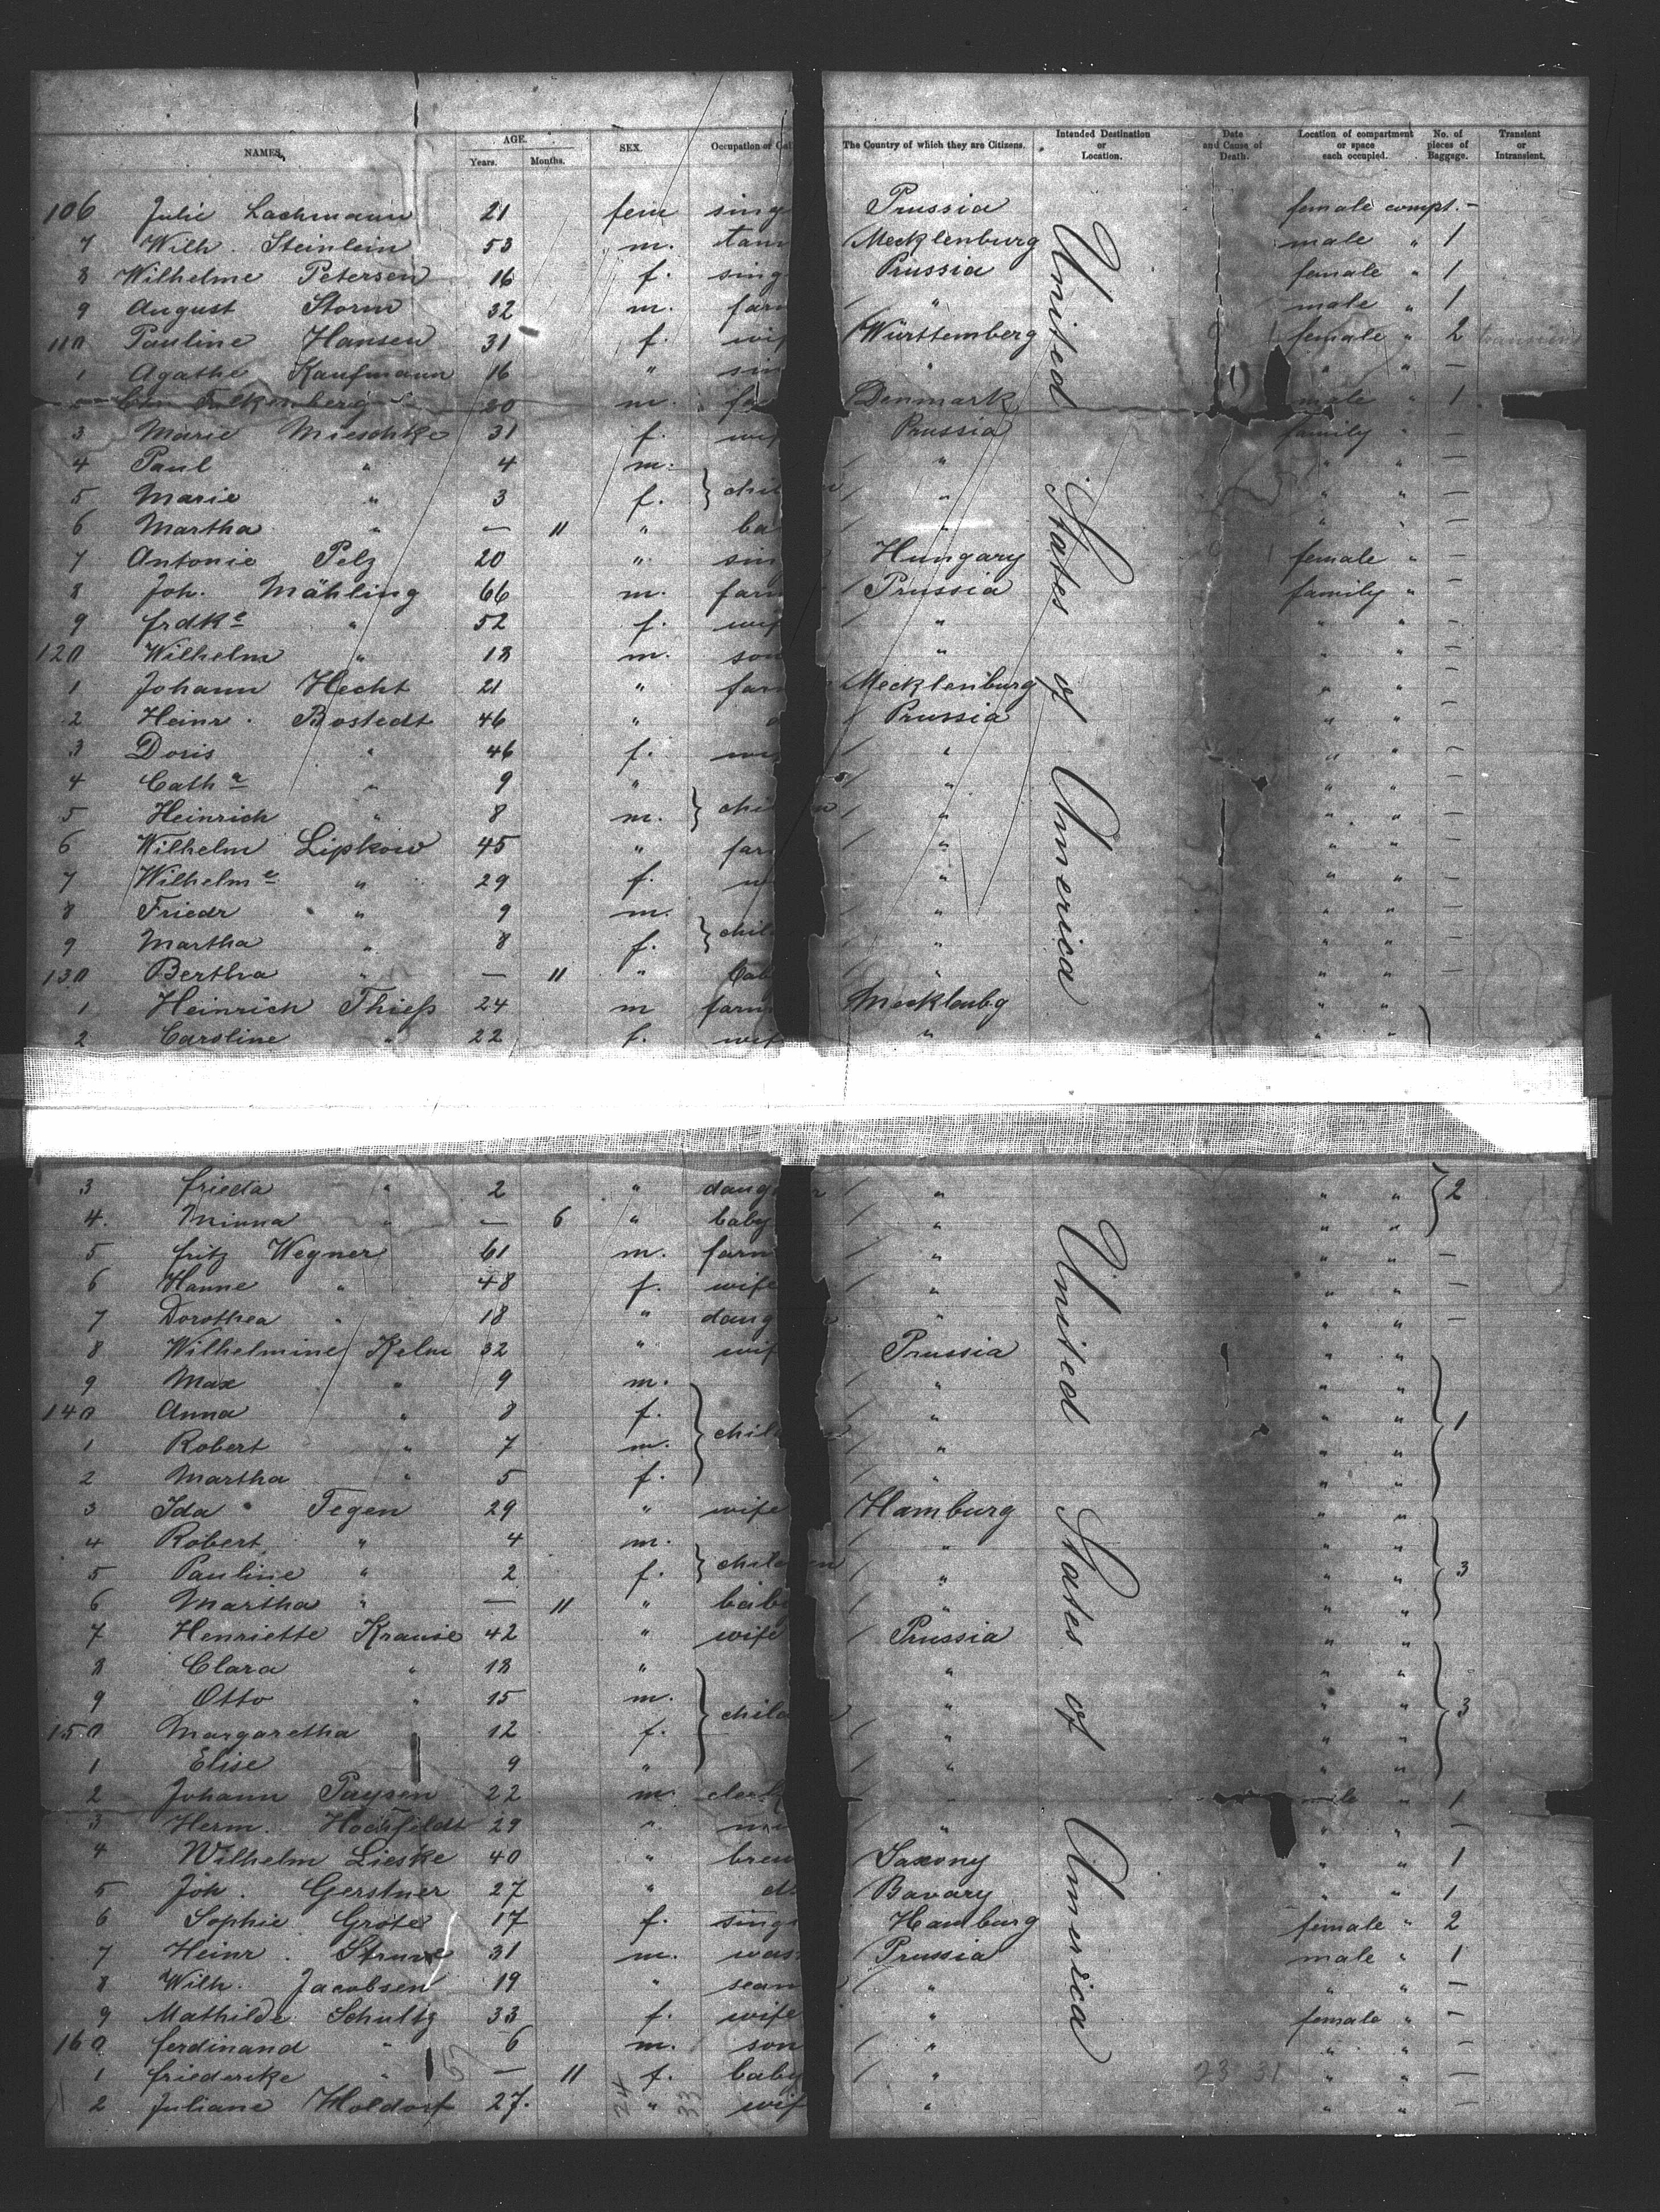 NAMES. AGE. SEX. Occupation of The Country of which they are Citizens. Intended Destination or Location. Date and Cause of Death. Location of compartment or space each occupied. No. of pieces of Baggage. Transient or Intransient.
Years. Months.
106 Julie Lachmann 21 fem sing Prussia female compt. —
7 Wilh. Steinlein 53 m. Mecklenburg male " 1
8 Wilhelme Petersen 16 f. sing Prussia female " 1
9 August Storm 32 m. farm " male " 1
110 Pauline Hansen 31 f. wif Württemberg female " 2
1 Agathe Kaufmann 16 " sin " " " —
2 Falkenberg 20 m. fa Denmark male " 1
3 Marie Mieschke 31 f. wif Prussia family " —
4 Paul " 4 m. " " " —
5 Marie " 3 f. } chil n " " " —
6 Martha " — 11 " ba " " " —
7 Antonie Pelz 20 " sin Hungary female " —
8 Joh. Mähling 66 m. farm Prussia family " —
9 Frdke " 52 f. wif " " " —
120 Wilhelm " 18 m. son " " " —
1 Johann Hecht 21 " far Mecklenburg " " —
2 Heinr. Bostedt 46 " Prussia " " —
3 Doris " 46 f. wif " " " —
4 Catha " 9 " " " " —
5 Heinrich " 8 m. } chil n " " " —
6 Wilhelm Lipkow 45 " far " " " —
7 Wilhelme " 29 f. w " " " —
8 Friedr " 9 m. " " " —
9 Martha " 8 f. } chil " " " —
130 Bertha " — 11 " bab " " " —
1 Heinrich Thieß 24 m farm Mecklenbg " "
2 Caroline " 22 f. wif " " "
3 Frieda " 2 " daug r " " " } 2
4. Minna " — 6 " baby " " "
5 Fritz Wegner 61 m. farm " " " —
6 Hanne " 48 f. wife " " " —
7 Dorothea " 18 " daug " " " —
8 Wilhelmine Kelm 32 " wif Prussia " "
9 Max " 9 m. " " "
140 Anna " 8 f. " " " } 1
1 Robert " 7 m. } chil " " "
2 Martha " 5 f. " " "
3 Ida Tegen 29 " wife Hamburg " "
4 Robert " 4 m. " " "
5 Pauline " 2 f. } child n " " " } 3
6 Martha " — 11 " bab " " "
7 Henriette Krause 42 " wife Prussia " "
8 Clara " 18 " " " "
9 Otto " 15 m. } child " " " } 3
150 Margaretha 12 f. " " "
1 Elise 9 " " " "
2 Johann Paysen 22 m clerk " male " 1
3 Herm. Hochfeldt 29 " " " " —
4 Wilhelm Lieske 40 " brew Saxony " " 1
5 Joh. Gerstner 27 " d Bavary " " 1
6 Sophie Grote 17 f. sing Hamburg female " 2
7 Heinr. Struve 31 m. Prussia male " 1
8 Wilh. Jacobsen 19 " seam " " " —
9 Mathilde Schultz 33 f. wife " female " —
160 Ferdinand " 6 m. son " " " —
1 Friedericke " — 11 f. baby " " " —
2 Juliane Holdorf 27. " wif " " " —
United States of America
United States of America
57 24 33 23 31